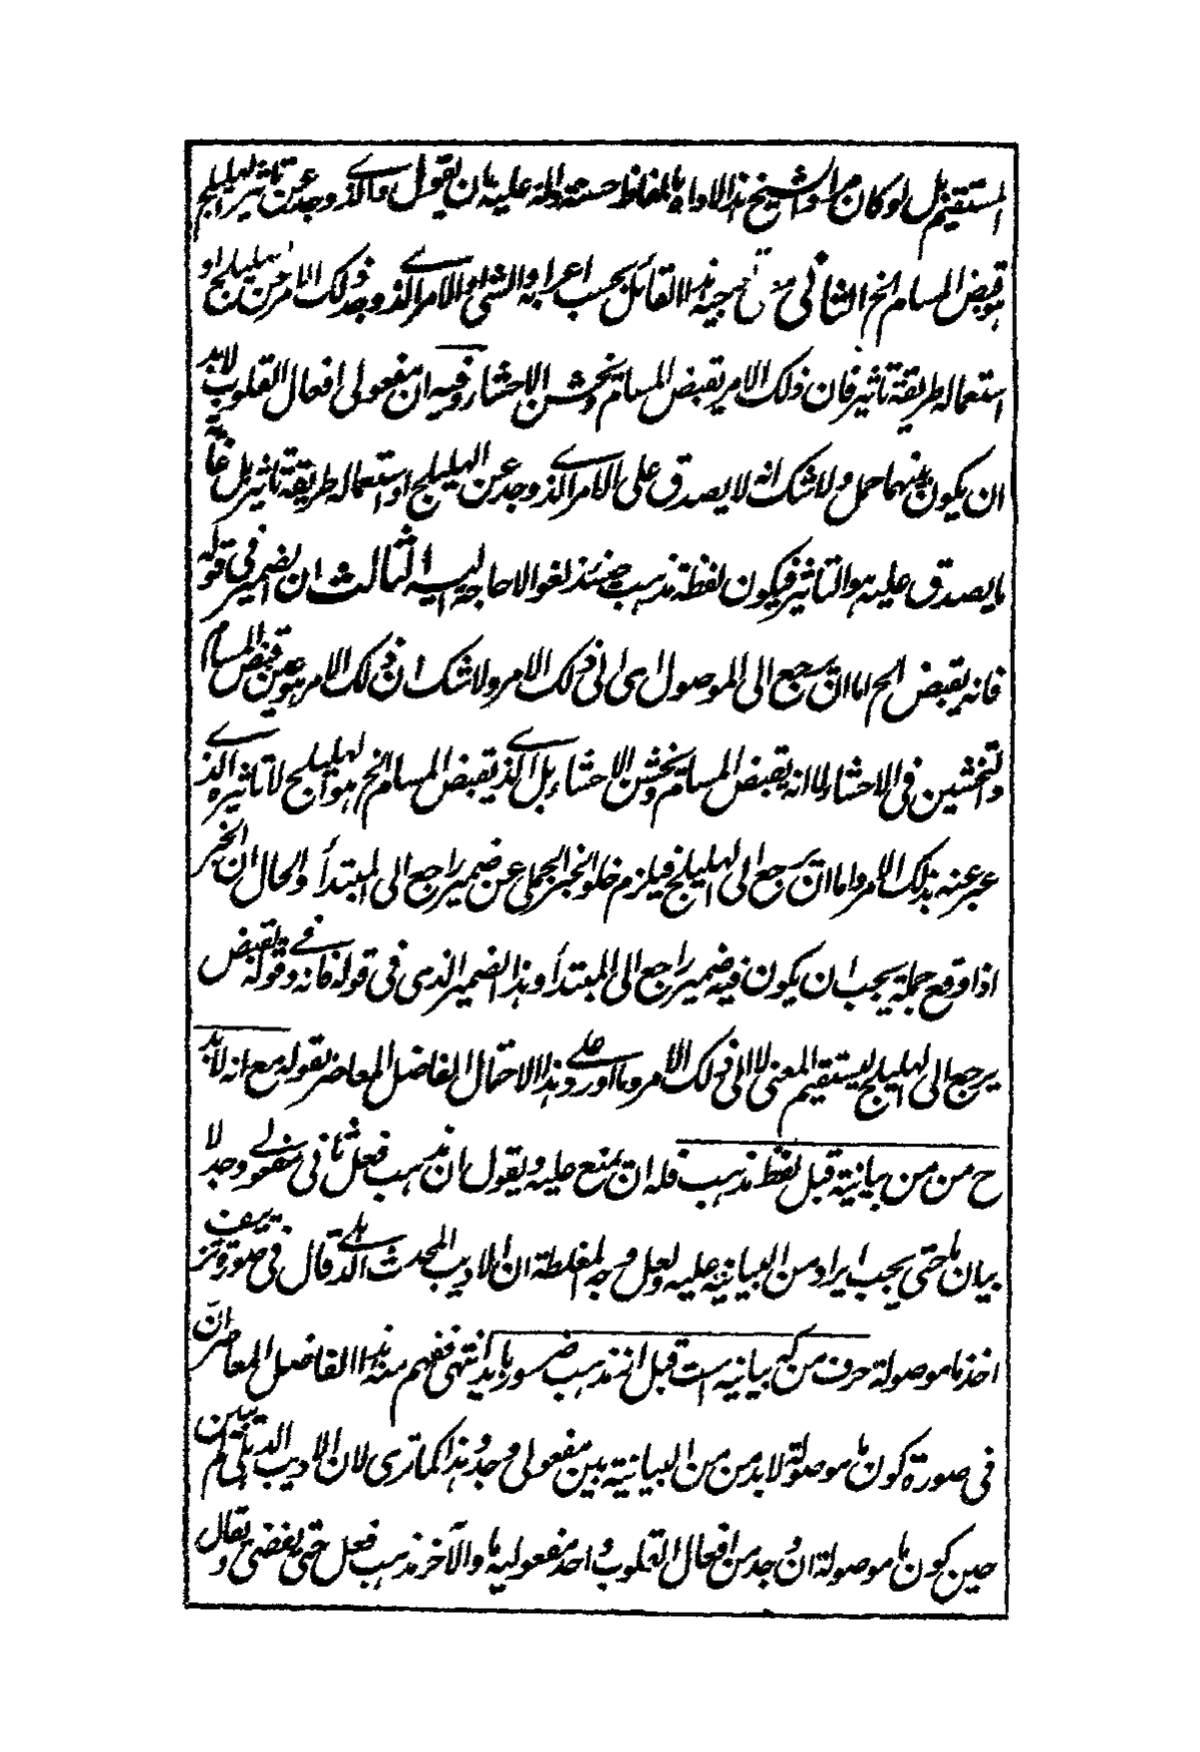 المستقيم بل لو كان مراد الشيخ هذا لاداه بالفاظ حسنة دالة عليه بان يقول والذى وجد عن تاثير الهليلج
هو قبض المسام الخ الثانى توجيه هذا القائل بحسب اعرابه والشئ او الامر الذى وجد وذلك الامر من هليلج او
استعماله طريقة تاثير فان ذلك الامر يقبض المسام ويخشن الاحشاء وفيه ان مفعولى افعال القلوب لابد
ان يكون بينهما حمل ولا شك انه لا يصدق على الامر الذى وجد عن الهليلج او استعماله طريقة تاثير بل غاية
ما يصدق عليه هو التاثير فيكون لفظة مذهب حينئذ لغوا لا حاجة اليه الثالث ان الضمير فى قوله
فانه يقبض الخ اما ان يرجع الى الموصول اى الى ذلك الامر ولا شك ان ذلك الامر هو عين قبض المسام
والتخشين فى الاحشاء لا انه يقبض المسام ويخشن الاحشاء بل الذى يقبض المسام الخ هو الهليلج لا تاثيره الذى
عبر عنه بذلك الامر واما ان يرجع الى الهليلج فيلزم خلو الخبر الجملى عن ضمير راجع الى المبتدأ والحال ان الخبر
اذا وقع جملة يجب ان يكون فيه ضمير راجع الى المبتدأ وهذا الضمير الذى فى قوله فانه وفى قوله يقبض
يرجع الى الهليلج ليستقيم المعنى لا الى ذلك الامر وما اورد على هذا الاحتمال الفاضل المعاصر بقوله مع انه لابد
ح من من بيانية قبل لفظ مذهب فله ان يمنع عليه ويقول ان مذهب فعل ثانى مفعولى وجد لا
بيان ما حتى يجب ايراد من البيانية عليه ولعل وجه المغلطة ان الاديب المحدث الدهلى قال فى صورة تزييف
اخذ ما موصولة حرف من كه بيانيه است قبل از مذهب ضرور بايد انتهى ففهم منه هذا الفاضل المعاصر ان
فى صورة كون ما موصولة لابد من من البيانية بين مفعولى وجد وهذا كما ترى لان الاديب الدهلى لم يبين
حين كون ما موصولة ان وجد من افعال القلوب واحد مفعوليه ما والآخر مذهب فعل حتى يفضى ويقال